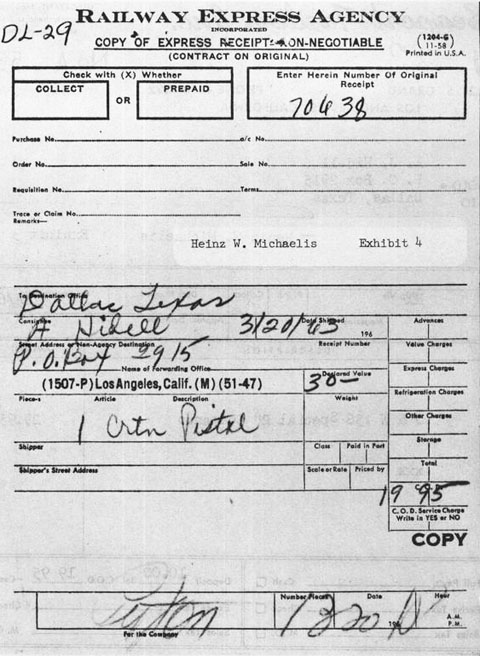 RAILWAY EXPRESS AGENCY
INCORPORATED
DL-29
COPY OF EXPRESS RECEIPT-NON-NEGOTIABLE
(CONTRACT ON ORIGINAL)
(1204-G)
(11-58)
Printed in U.S.A.
Check with (X) Whether
COLLECT
OR
PREPAID
Enter Herein Number Of Original
Receipt
70638
Purchase No.
o/c No.
Order No.
Sale No.
Requisition No.
Terms
Trace or Claim No.
Remarks
Heinz W. Michaelis Exhibit 4
To Destination Office
Dallas Texas
Consignee
Date Shipped
A Hidell 3/20/63 196
Street Address or Non-Agency Destination
Receipt Number
P.O. Box 2915
Name of Forwarding Office
Declared Value
(1507-P) Los Angeles, Calif. (M) (51-47)
30—
Piece-s Article Description Weight
1 Crtn Pistol
Shipper
Class Paid in Part
Shipper's Street Address
Scale or Rate Priced by
Advances
Value Charges
Express Charges
Refrigeration Charges
Other Charges
Storage
Total
19 95
C. O. D. Service Charge
Write in YES or NO
COPY
For the Company
Number Pieces Date Hour
196
A.M.
P.M.